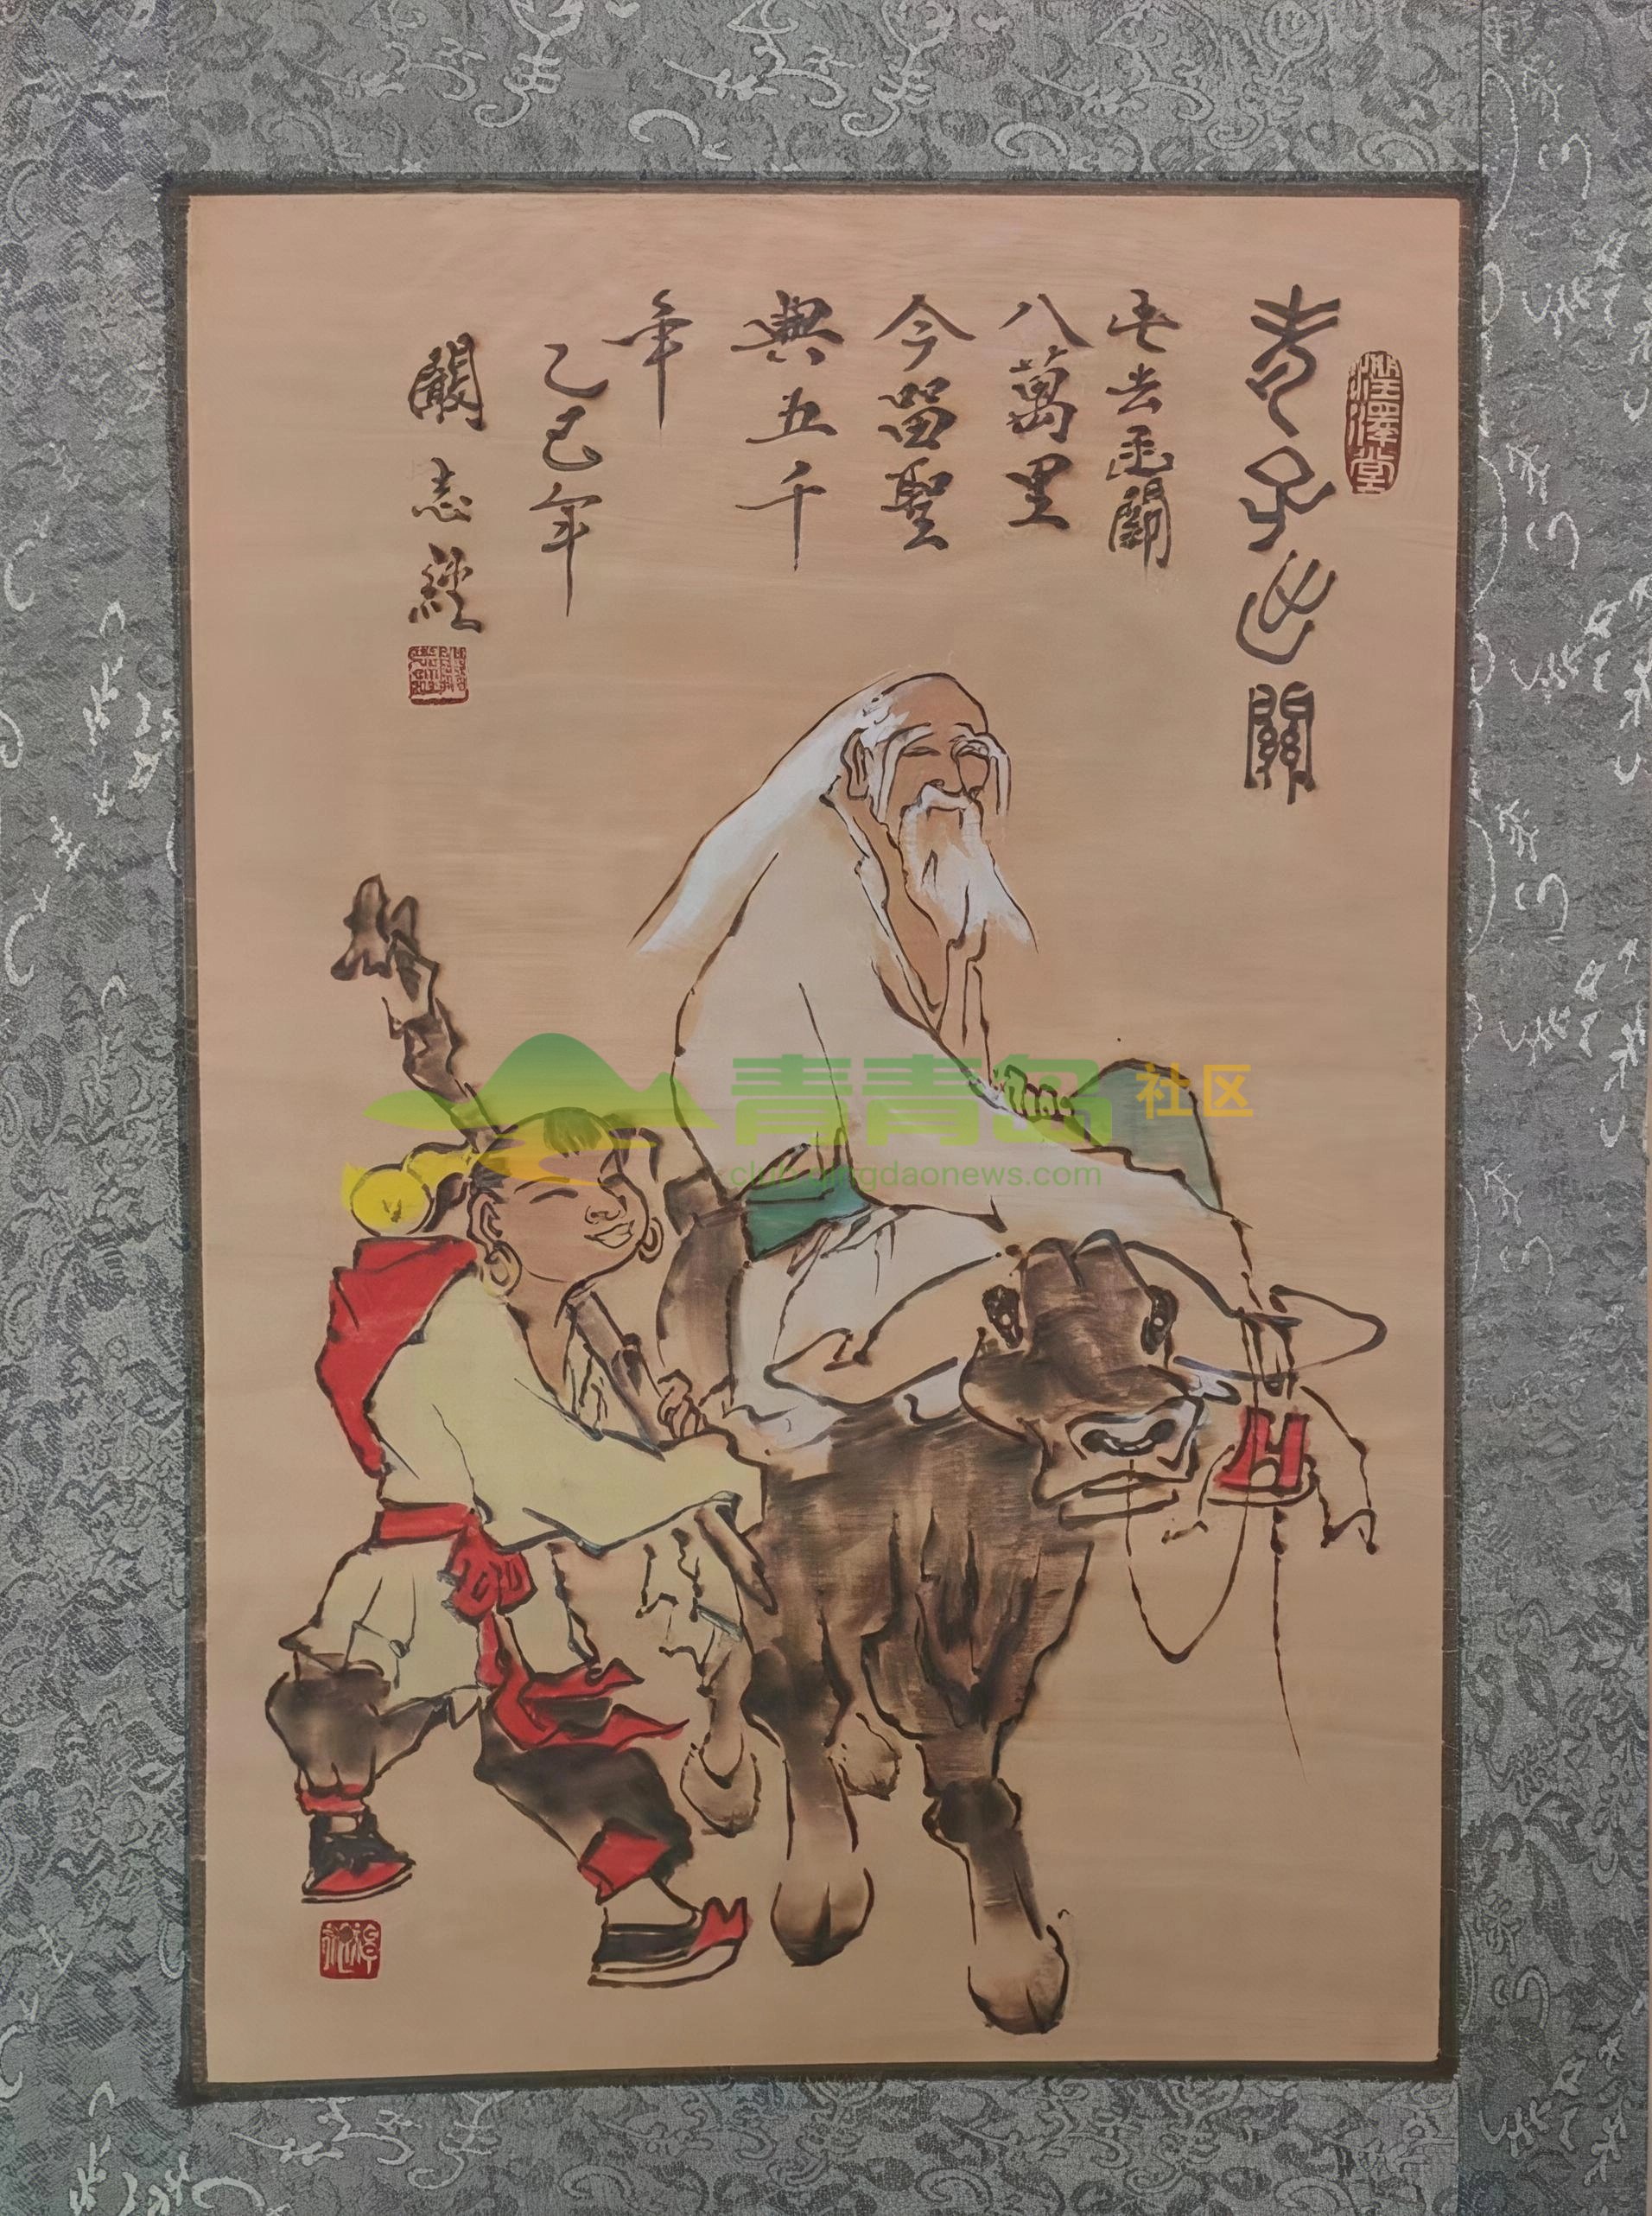 老子出關
西去函關
八萬里
今留聖
典五千
年
乙巳年
闞志經
涇澤堂
青青岛社区
club.qingdaonews.com